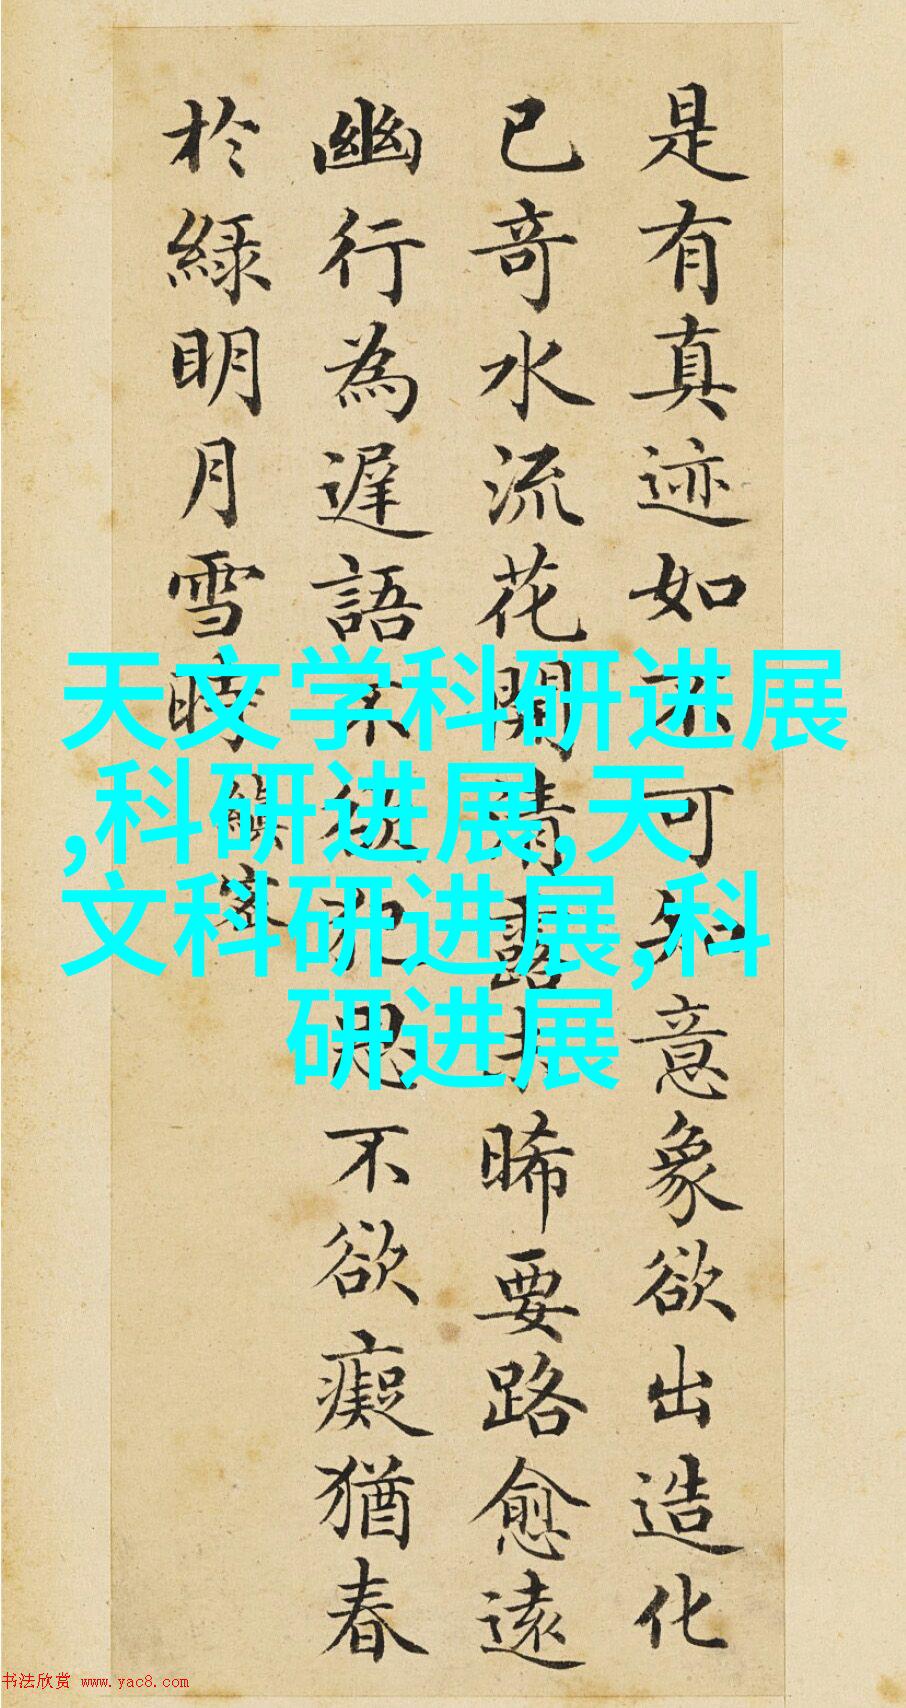 是有真迹如不可知意象欲出造化
已奇水流花開清露未晞要路愈遠
幽行為遲語不欲犯思不欲癡猶春
於綠明月雪時
縝密
天文学科研进展
,科研进展,天
文科研进展,科
研进展
书法欣赏 www.yac8.com